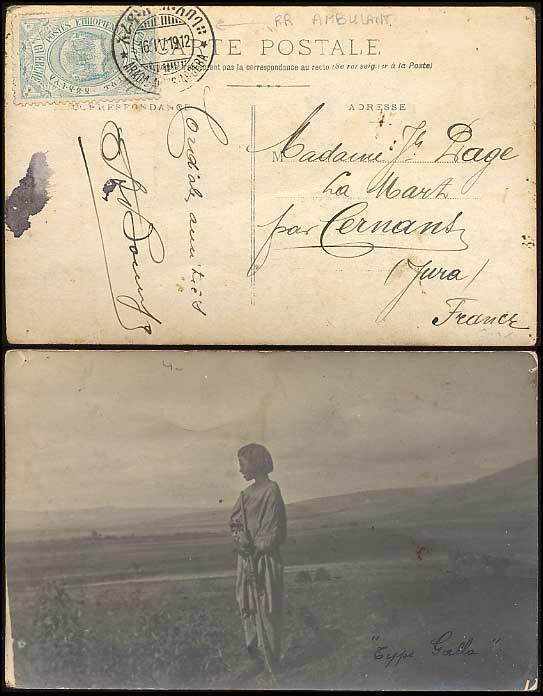 RR AMBULANT
POSTES ETHIOPIENNES
16.IV.1912
CARTE POSTALE
pas la correspondance au recto (Se renseigner à la Poste)
CORRESPONDANCE
ADRESSE
Cordiales amitiés
Madame Jh Page
La Mart
par Cernans
(Jura)
France
"Type Galla"